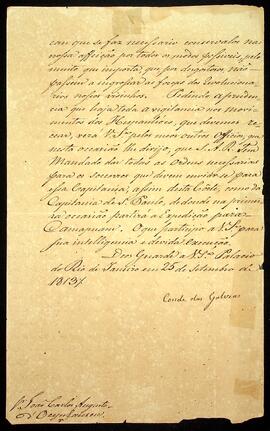 can que se faz necessario conservalos na
nossa affeição por todos os modos possiveis, pelo
muito que importa que por desgostosos, não
passem a engrossar as forças dos
nossos visinhos. Pedindo a pruden
cia que haja toda a vigilancia nos movi-
mentos dos que devemos re
cear, verá V.S.ª pelo meu outro Officio, que
nesta occasião lhe dirijo, que S. A. R. tem
Mandado dar todas as Ordens necessarias
para os soccorros que devem enviar-se para
essa Capitania, assim desta Corte, como da
Capitania de S. Paulo, de donde na primei
ra occasião partirá a Expedição para
Camapuam. O que participo a V.S.ª para
sua intelligencia e devida execução.
Deos Guarde a V.S.ª Palacio
do Rio de Janeiro em 25 de Setembro de
1813
Conde das Galveas
S.r João Carlos Augusto
d'Oeynhausen